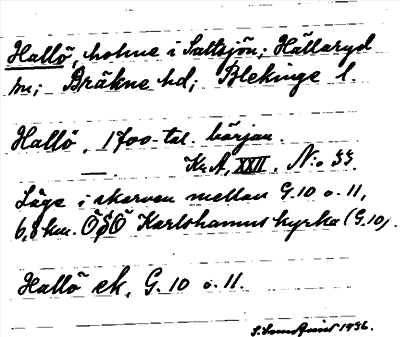 Hallö, holme i Saltsjön; Hällaryd
sn; Bräkne hd; Blekinge l.
Hallö, 1700-tal. början.
— . Kr. A, XXII. N:o 33.
Läge i skarven mellan G.10 o. 11,
6,8 km. ÖSÖ Karlshamns kyrka (G.10).
Hallö ek. G. 10 o. 11.
1936.